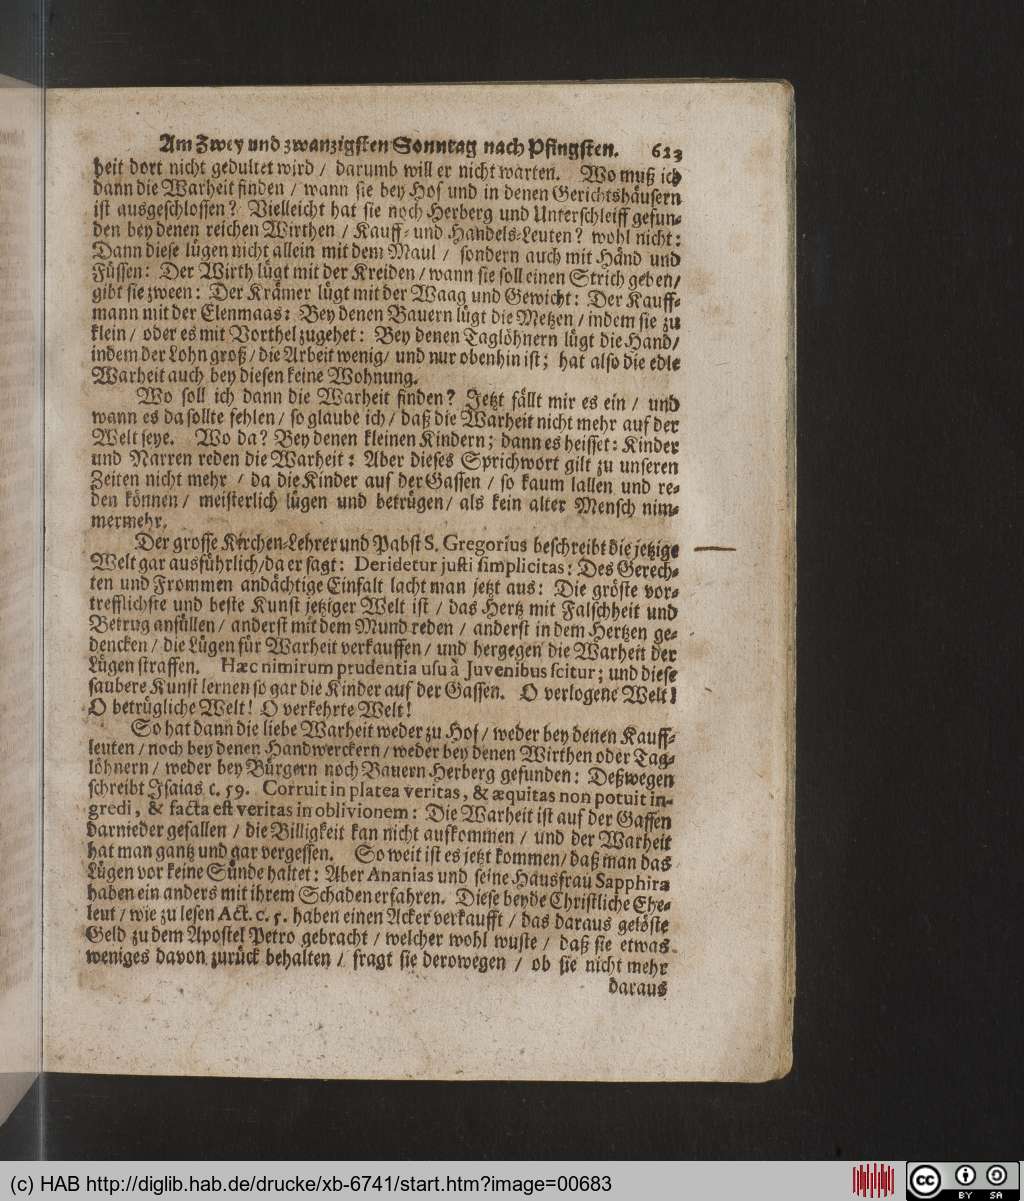 Am Zwey und zwanzigsten Sonntag nach Pfingsten. 623
heit dort nicht gedultet wird / darumb will er nicht warten. Wo muß ich
dann die Warheit finden / wann sie bey Hof und in denen Gerichtshäusern
ist ausgeschlossen? Vielleicht hat sie noch Herberg und Unterschleiff gefun-
den bey denen reichen Wirthen / Kauff- und Handels-Leuten? wohl nicht:
Dann diese lügen nicht allein mit dem Maul / sondern auch mit Händ und
Füssen: Der Wirth lügt mit der Kreiden / wann sie soll einen Strich geben /
gibt sie zween: Der Krämer lügt mit der Waag und Gewicht: Der Kauff-
mann mit der Elenmaas: Bey denen Bauern lügt die Metzen / indem sie zu
klein / oder es mit Vorthel zugehet: Bey denen Taglöhnern lügt die Hand /
indem der Lohn groß / die Arbeit wenig / und nur obenhin ist; hat also die edle
Warheit auch bey diesen keine Wohnung.
Wo soll ich dann die Warheit finden? Jetzt fällt mir es ein / und
wann es da sollte fehlen / so glaube ich / daß die Warheit nicht mehr auf der
Welt seye. Wo da? Bey denen kleinen Kindern; dann es heisset: Kinder
und Narren reden die Warheit: Aber dieses Sprichwort gilt zu unseren
Zeiten nicht mehr / da die Kinder auf der Gassen / so kaum lallen und re-
den können / meisterlich lügen und betrügen / als kein alter Mensch nim-
mermehr.
Der grosse Kirchen-Lehrer und Pabst S. Gregorius beschreibt die jetzige
Welt gar ausführlich / da er sagt: Deridetur justi simplicitas: Des Gerech-
ten und Frommen andächtige Einfalt lacht man jetzt aus: Die gröste vor-
trefflichste und beste Kunst jetziger Welt ist / das Hertz mit Falschheit und
Betrug anfüllen / anderst mit dem Mund reden / anderst in dem Hertzen ge-
dencken / die Lügen für Warheit verkauffen / und hergegen die Warheit der
Lügen straffen. Hæc nimirum prudentia usu à Juvenibus scitur; und diese
saubere Kunst lernen so gar die Kinder auf der Gassen. O verlogene Welt!
O betrügliche Welt! O verkehrte Welt!
So hat dann die liebe Warheit weder zu Hof / weder bey denen Kauff-
leuten / noch bey denen Handwerckern / weder bey denen Wirthen oder Tag-
löhnern / weder bey Bürgern noch Bauern Herberg gefunden: Deßwegen
schreibt Isaias c. 59. Corruit in platea veritas, & æquitas non potuit in-
gredi, & facta est veritas in oblivionem: Die Warheit ist auf der Gassen
darnieder gefallen / die Billigkeit kan nicht aufkommen / und der Warheit
hat man gantz und gar vergessen. So weit ist es jetzt kommen / daß man das
Lügen vor keine Sünde haltet: Aber Ananias und seine Hausfrau Sapphira
haben ein anders mit ihrem Schaden erfahren. Diese beyde Christliche Ehe-
leut / wie zu lesen Act. c. 5. haben einen Acker verkaufft / das daraus gelöste
Geld zu dem Apostel Petro gebracht / welcher wohl wuste / daß sie etwas
weniges davon zurück behalten / fragt sie derowegen / ob sie nicht mehr
daraus
(c) HAB http://diglib.hab.de/drucke/xb-6741/start.htm?image=00683
cc BY SA